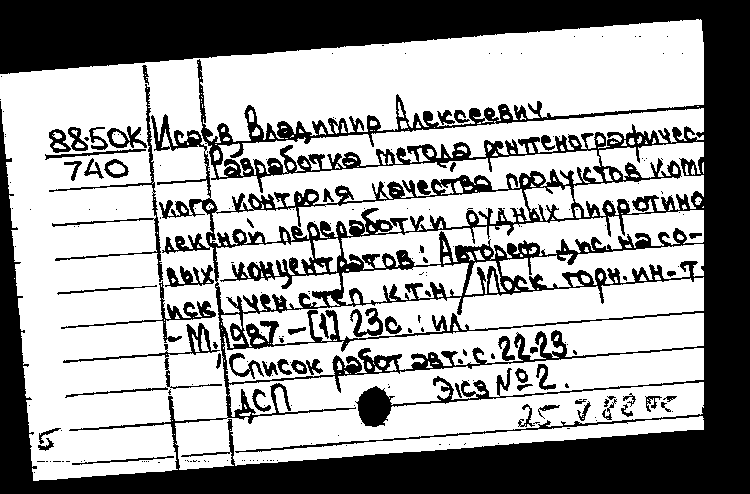 88-50К Исаев Владимир Алексеевич.
740 Разработка метода рентгенографичес-
кого контроля качества продуктов комп
лексной переработки рудных пирротино
вых концентратов: Автореф. дис. на со-
иск. учен. степ. к.т.н. / Моск. горн. ин-т.
- М., 1987. - [1], 23с.: ил.
Список работ авт.: с. 22-23.
ДСП Экз №2.
25.V.88
5